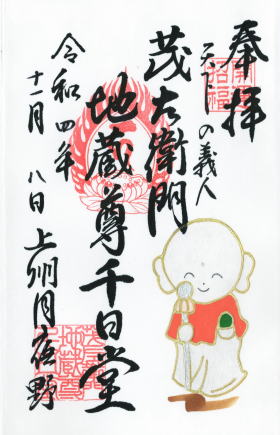 奉拝
天下の義人
茂左衛門
地蔵尊千日堂
令和四年
十一月八日
上州月夜野